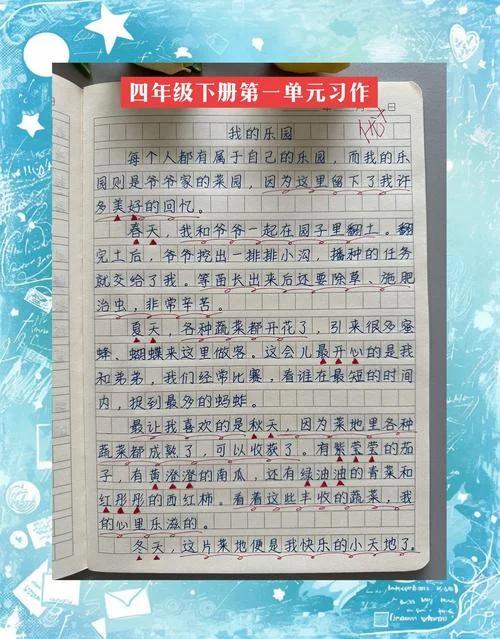 四年级下册第一单元习作
日
优+
我的乐园
每个人都有属于自己的乐园，而我的乐
园则是爷爷家的菜园，因为这里留下了我许
多美好的回忆。
春天，我和爷爷一起在园子里翻土。翻
完土后，爷爷挖出一排排小沟，播种的任务
就交给了我。等苗长出来后还要除草、施肥
治虫，非常辛苦。
夏天，各种蔬菜都开花了，引来很多蜜
蜂、蝴蝶来这里做客。这会儿最开心的是我
和弟弟，我们经常比赛，看谁在最短的时间
内，捉到最多的蚂蚱。
最让我喜欢的是秋天，因为菜地里各种
蔬菜都成熟了，可以收获了。有紫莹莹的茄
子，有黄澄澄的南瓜，还有绿油油的青菜和
红彤彤的西红柿。看着这些丰收的蔬菜，我
的心里乐滋的。
冬天，这片菜地便是我快乐的小天地了。